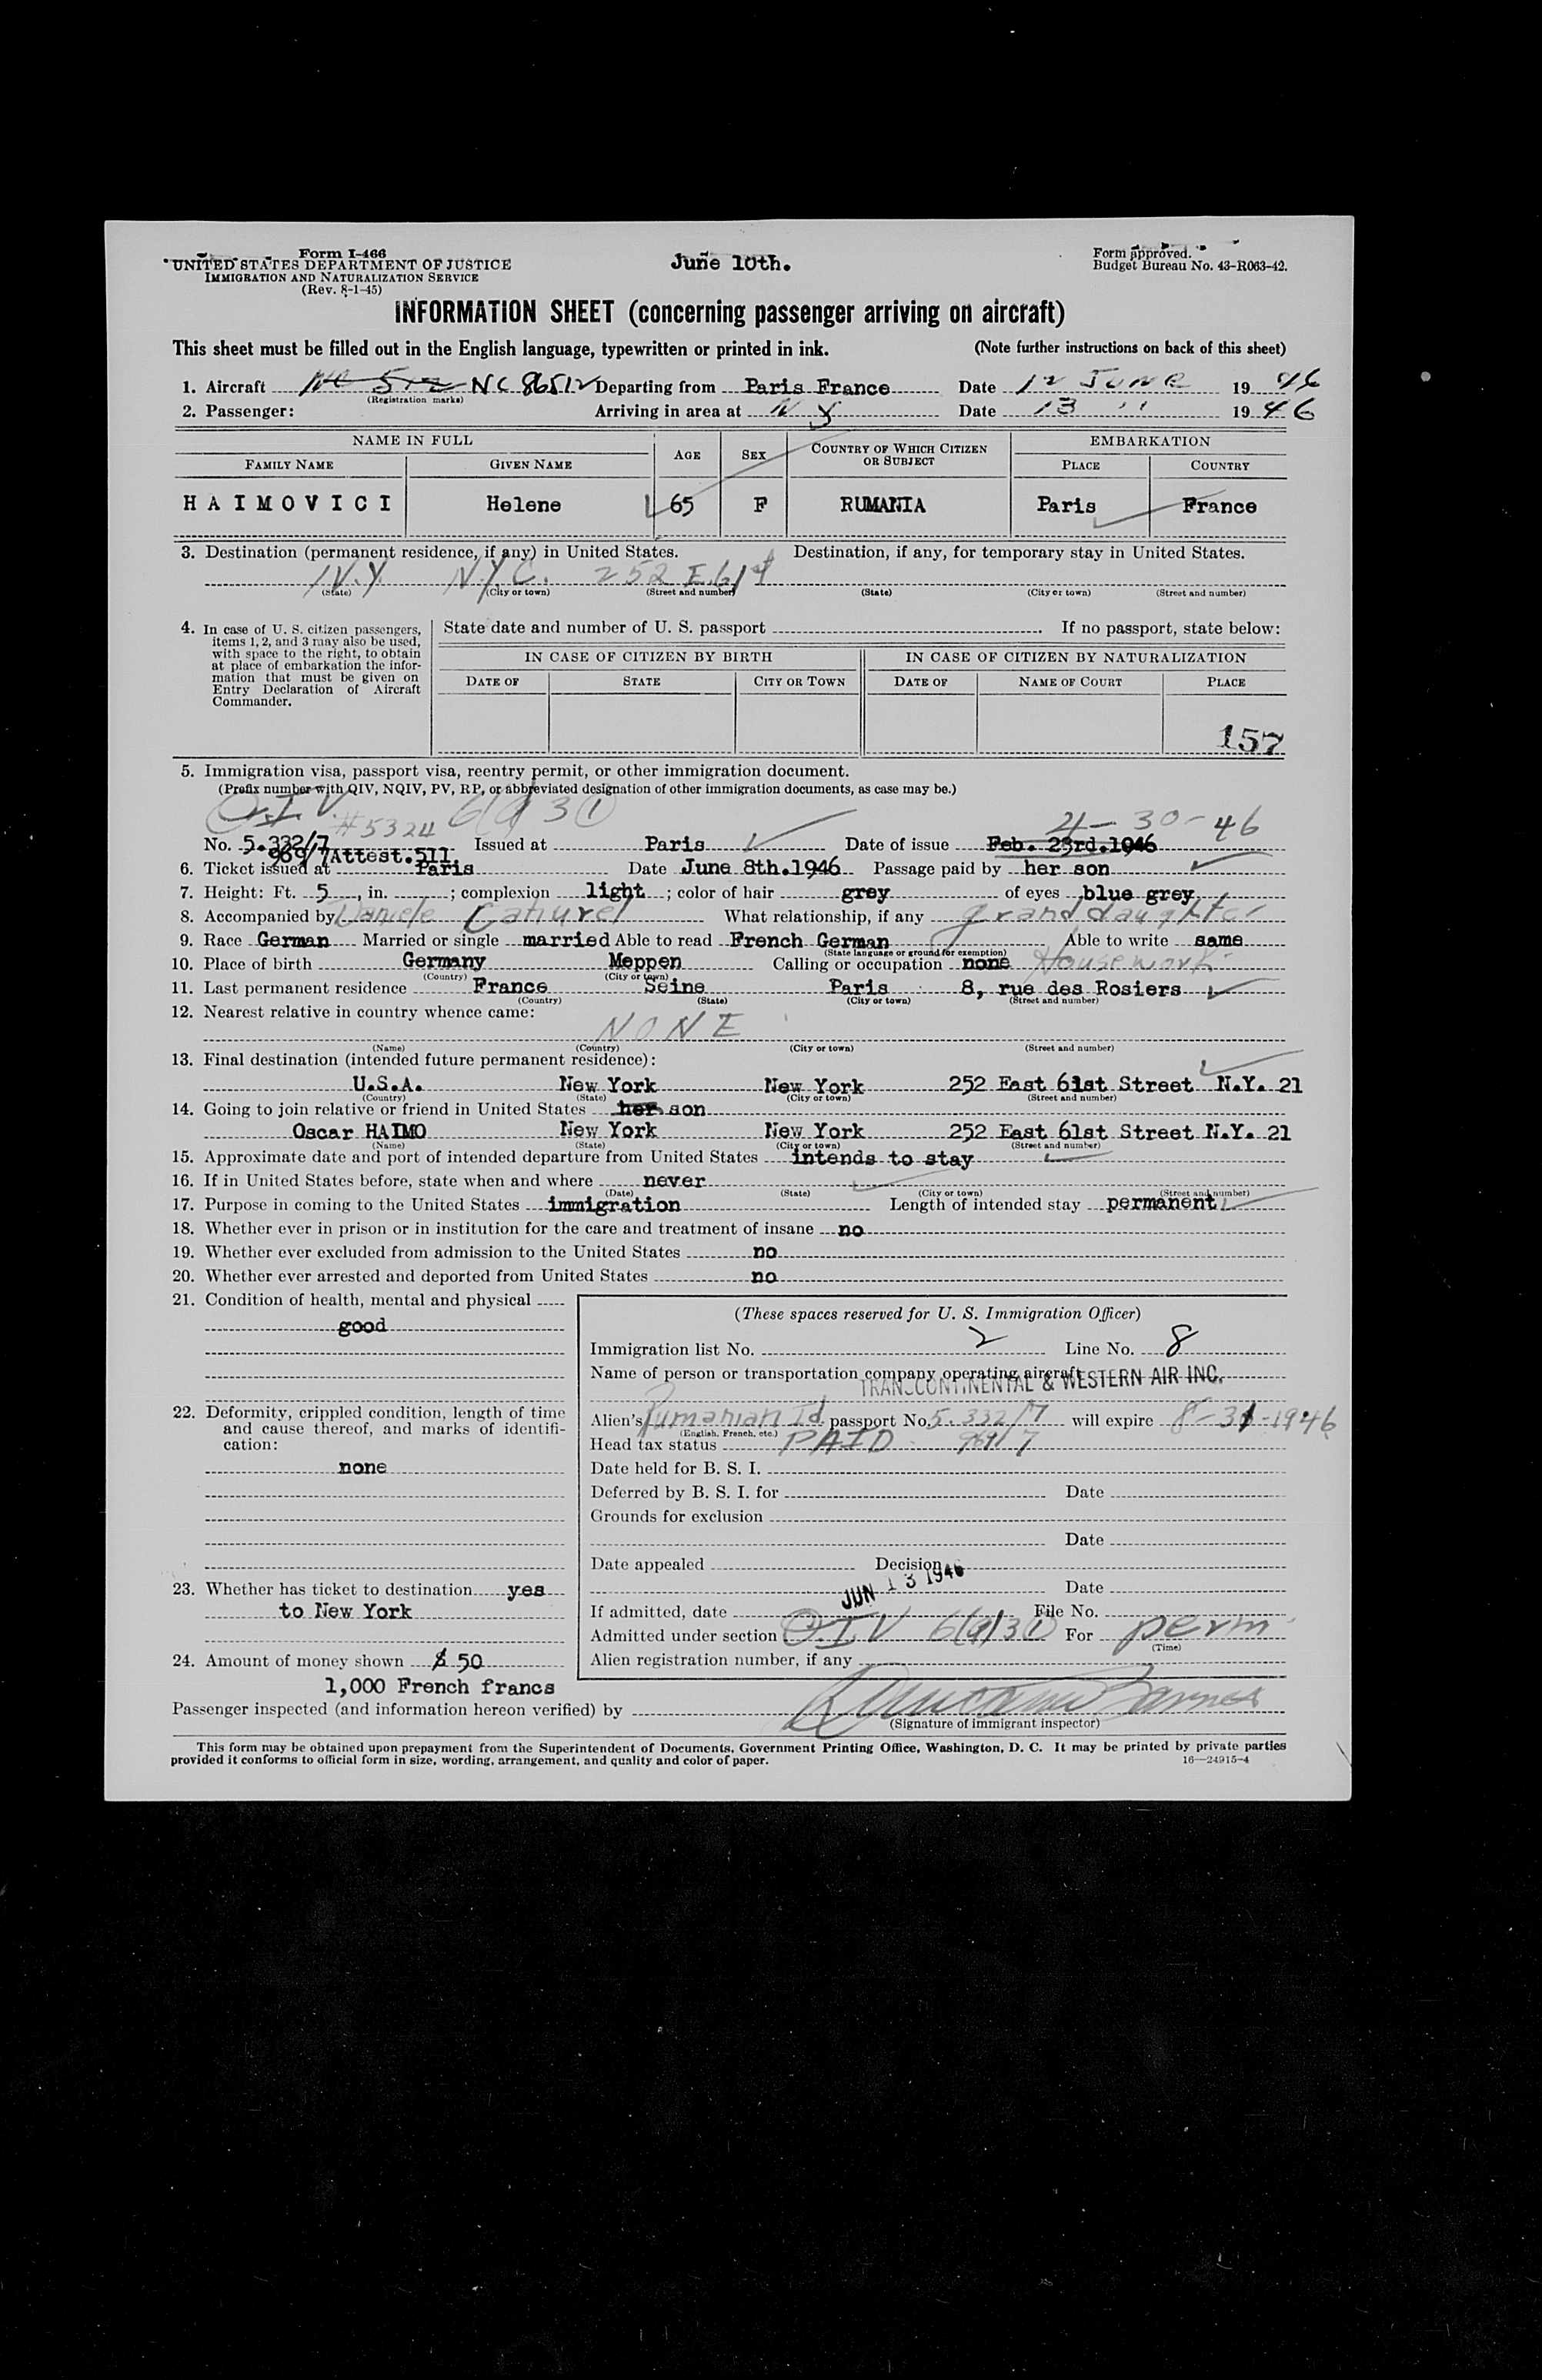 Form I-466
UNITED STATES DEPARTMENT OF JUSTICE
IMMIGRATION AND NATURALIZATION SERVICE
(Rev. 8-1-45)
June 10th.
Form approved.
Budget Bureau No. 43-R063-42.
INFORMATION SHEET (concerning passenger arriving on aircraft)
This sheet must be filled out in the English language, typewritten or printed in ink. (Note further instructions on back of this sheet)
1. Aircraft NC 86512 Departing from Paris France Date 12 JUNE 1946
(Registration marks)
2. Passenger: Arriving in area at N Y Date 13 '' 1946
NAME IN FULL AGE SEX COUNTRY OF WHICH CITIZEN OR SUBJECT EMBARKATION
FAMILY NAME GIVEN NAME PLACE COUNTRY
HAIMOVICI Helene 65 F RUMANIA Paris France
3. Destination (permanent residence, if any) in United States. Destination, if any, for temporary stay in United States.
N.Y. N.Y.C. 252 E. 61st
(State) (City or town) (Street and number) (State) (City or town) (Street and number)
4. In case of U. S. citizen passengers, items 1, 2, and 3 may also be used, with space to the right, to obtain at place of embarkation the information that must be given on Entry Declaration of Aircraft Commander.
State date and number of U. S. passport If no passport, state below:
IN CASE OF CITIZEN BY BIRTH IN CASE OF CITIZEN BY NATURALIZATION
DATE OF STATE CITY OR TOWN DATE OF NAME OF COURT PLACE
157
5. Immigration visa, passport visa, reentry permit, or other immigration document.
(Prefix number with QIV, NQIV, PV, RP, or abbreviated designation of other immigration documents, as case may be.)
Q.I.V. #5324 6(a)3(1) 4-30-46
No. 5.332/7 Issued at Paris Date of issue Feb. 23rd.1946
969/7 Attest.511
6. Ticket issued at Paris Date June 8th.1946 Passage paid by her son
7. Height: Ft. 5, in. ; complexion light; color of hair grey of eyes blue grey
8. Accompanied by Daniele Cahurel What relationship, if any granddaughter
9. Race German Married or single married Able to read French German Able to write same
(State language or ground for exemption)
10. Place of birth Germany Meppen Calling or occupation none Housework
(Country) (City or town)
11. Last permanent residence France Seine Paris 8, rue des Rosiers
(Country) (State) (City or town) (Street and number)
12. Nearest relative in country whence came:
NONE
(Name) (Country) (City or town) (Street and number)
13. Final destination (intended future permanent residence):
U.S.A. New York New York 252 East 61st Street N.Y. 21
(Country) (State) (City or town) (Street and number)
14. Going to join relative or friend in United States her son
Oscar HAIMO New York New York 252 East 61st Street N.Y. 21
(Name) (State) (City or town) (Street and number)
15. Approximate date and port of intended departure from United States intends to stay
16. If in United States before, state when and where never
(Date) (State) (City or town) (Street and number)
17. Purpose in coming to the United States immigration Length of intended stay permanent
18. Whether ever in prison or in institution for the care and treatment of insane no
19. Whether ever excluded from admission to the United States no
20. Whether ever arrested and deported from United States no
21. Condition of health, mental and physical
good
22. Deformity, crippled condition, length of time and cause thereof, and marks of identification:
none
23. Whether has ticket to destination yes
to New York
24. Amount of money shown $ 50
1,000 French francs
(These spaces reserved for U. S. Immigration Officer)
Immigration list No. 2 Line No. 8
Name of person or transportation company operating aircraft
TRANSCONTINENTAL & WESTERN AIR INC.
Alien's Rumanian Id. passport No. 5.332/7 will expire 8-31-1946
(English, French, etc.)
Head tax status PAID 969/7
Date held for B. S. I.
Deferred by B. S. I. for Date
Grounds for exclusion
Date
Date appealed Decision
Date
JUN 13 1946
If admitted, date File No.
Admitted under section Q.I.V 6(a)3(1) For perm
(Time)
Alien registration number, if any
Passenger inspected (and information hereon verified) by
(Signature of immigrant inspector)
This form may be obtained upon prepayment from the Superintendent of Documents, Government Printing Office, Washington, D. C. It may be printed by private parties
provided it conforms to official form in size, wording, arrangement, and quality and color of paper. 16—24915-4